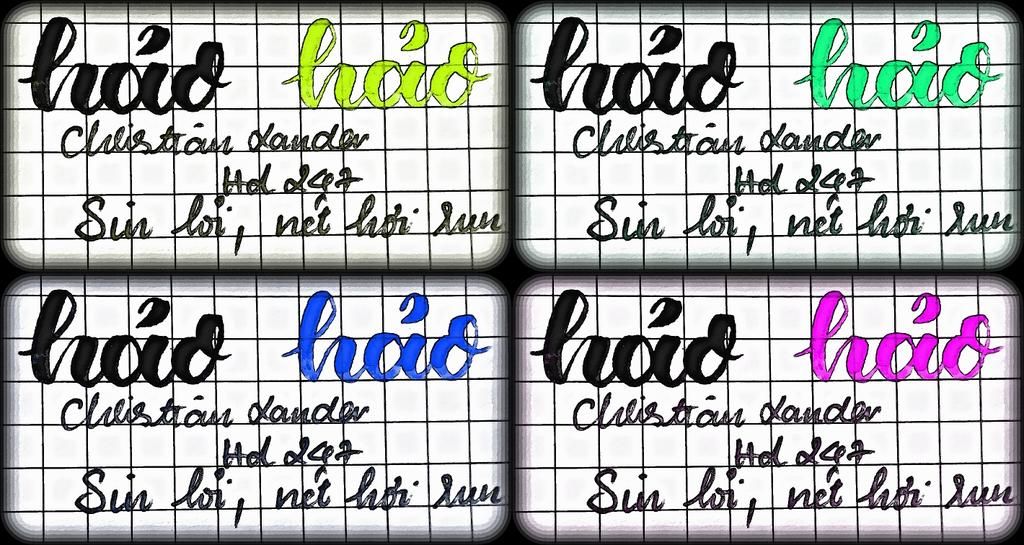 hảo hảo
Christian Xander
Hd 247
Sin lỗi, nét hơi run
hảo hảo
Christian Xander
Hd 247
Sin lỗi, nét hơi run
hảo hảo
Christian Xander
Hd 247
Sin lỗi, nét hơi run
hảo hảo
Christian Xander
Hd 247
Sin lỗi, nét hơi run